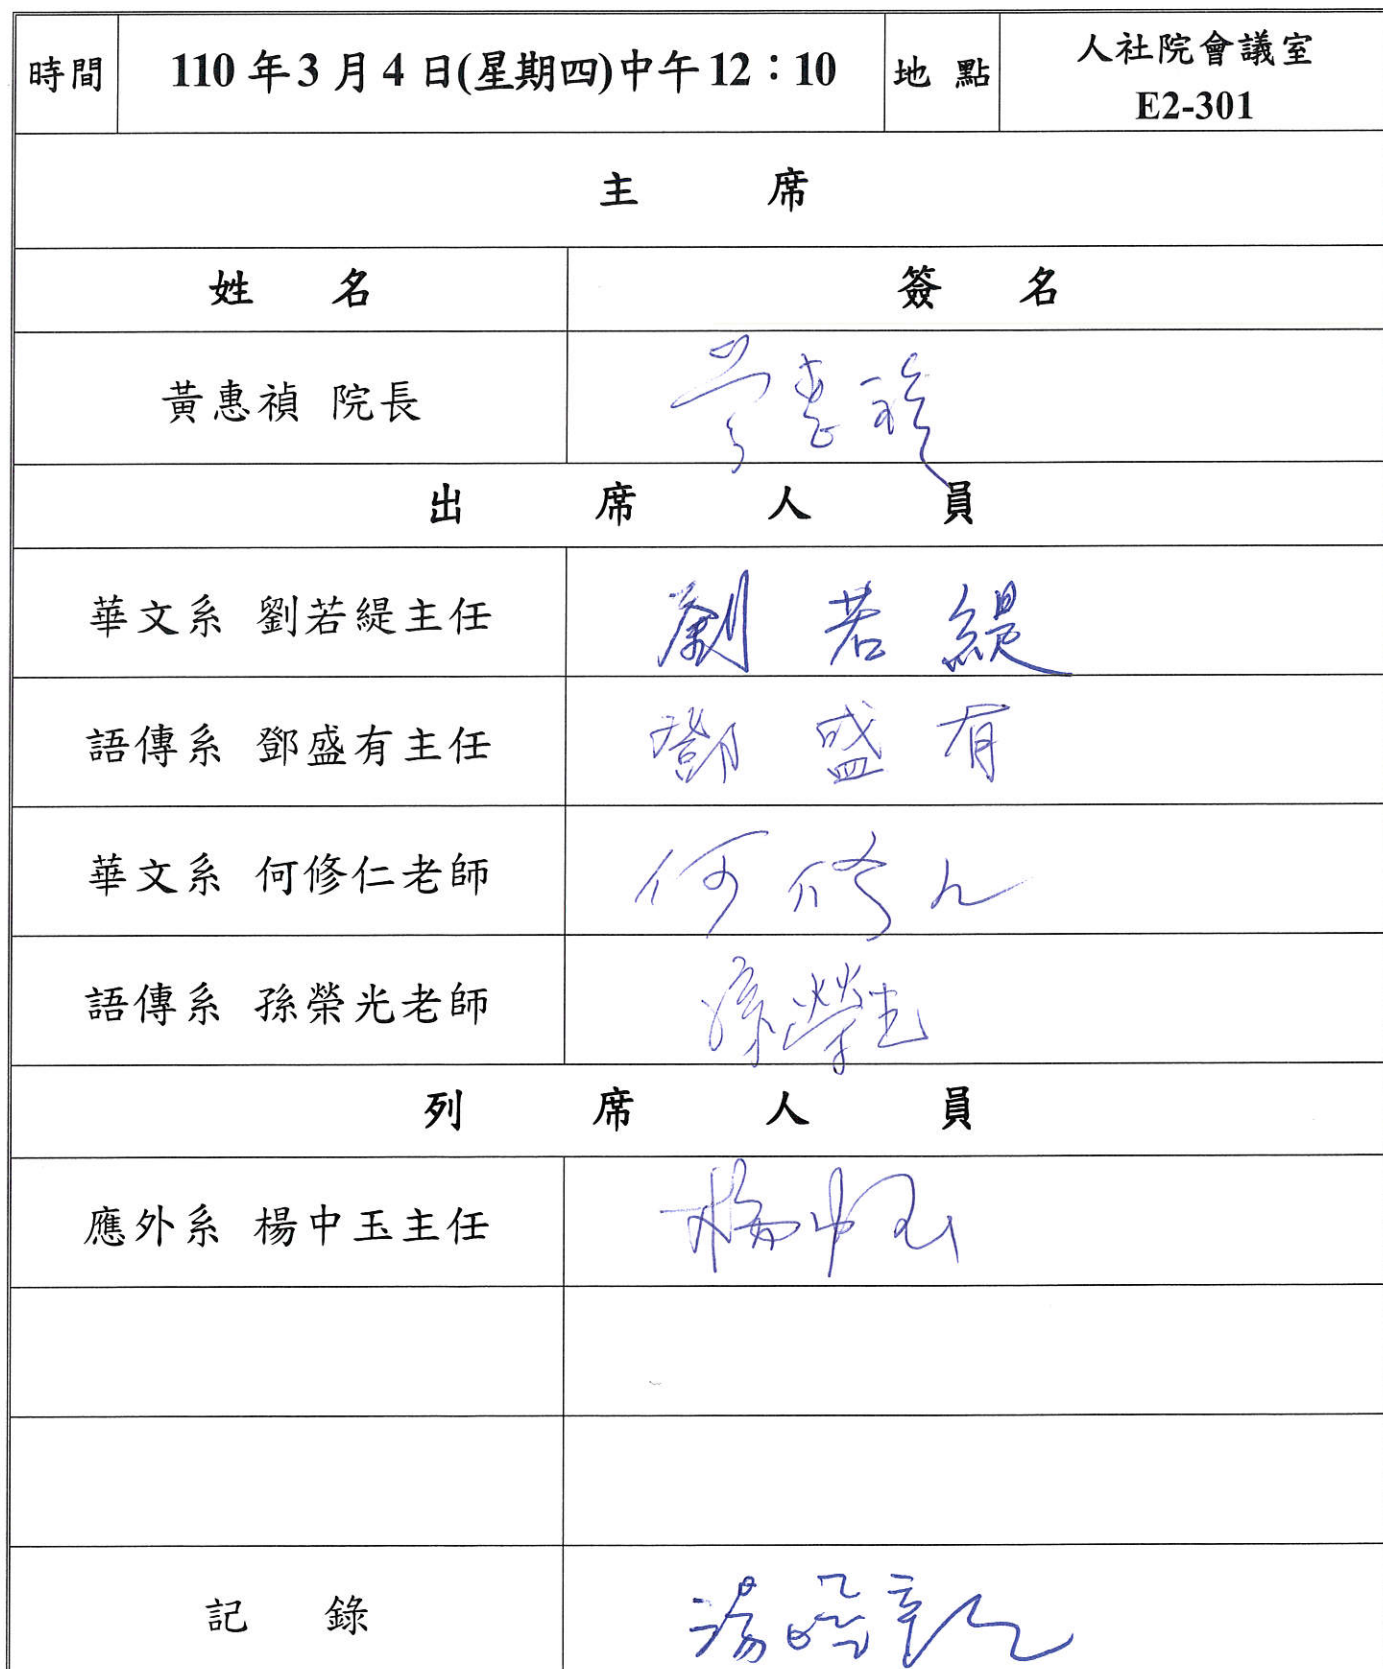 時間 110年3月4日(星期四)中午12：10 地點 人社院會議室
E2-301
主席
姓名 簽名
黃惠禎 院長 黃惠禎
出席人員
華文系 劉若緹主任 劉若緹
語傳系 鄧盛有主任 鄧盛有
華文系 何修仁老師 何修仁
語傳系 孫榮光老師 孫榮光
列席人員
應外系 楊中玉主任 楊中玉
記錄